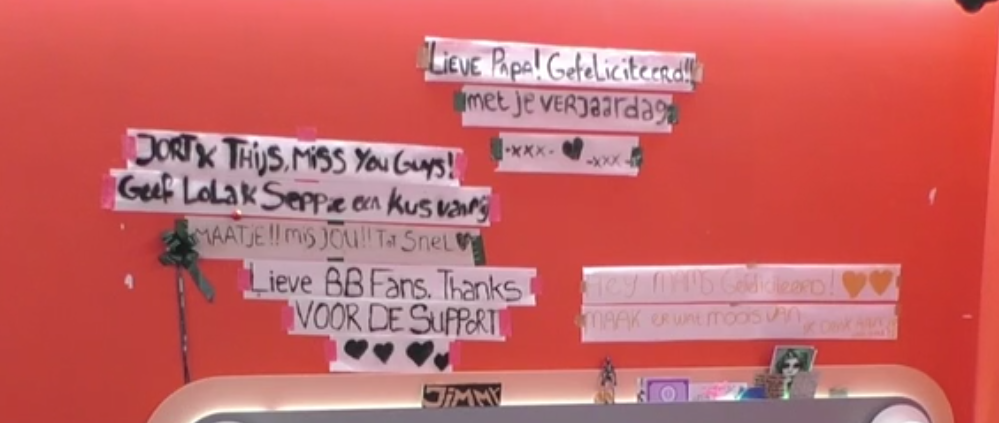 LIEVE PAPA! GEFELICITEERD!!
met je VERJaardag
-xxx- ♥ -xxx-
JORT & THIJS, MISS You Guys!
Geef LoLa & Seppie een kus van mij
MAATJE!! mis JOU!! Tot Snel ♥
Lieve BB Fans. Thanks
VOOR DE SUPPORT
♥♥ ♥♥
Hey MAMS Gefeliciteerd! ♥♥
MAAK er wat moois van
JIMMY